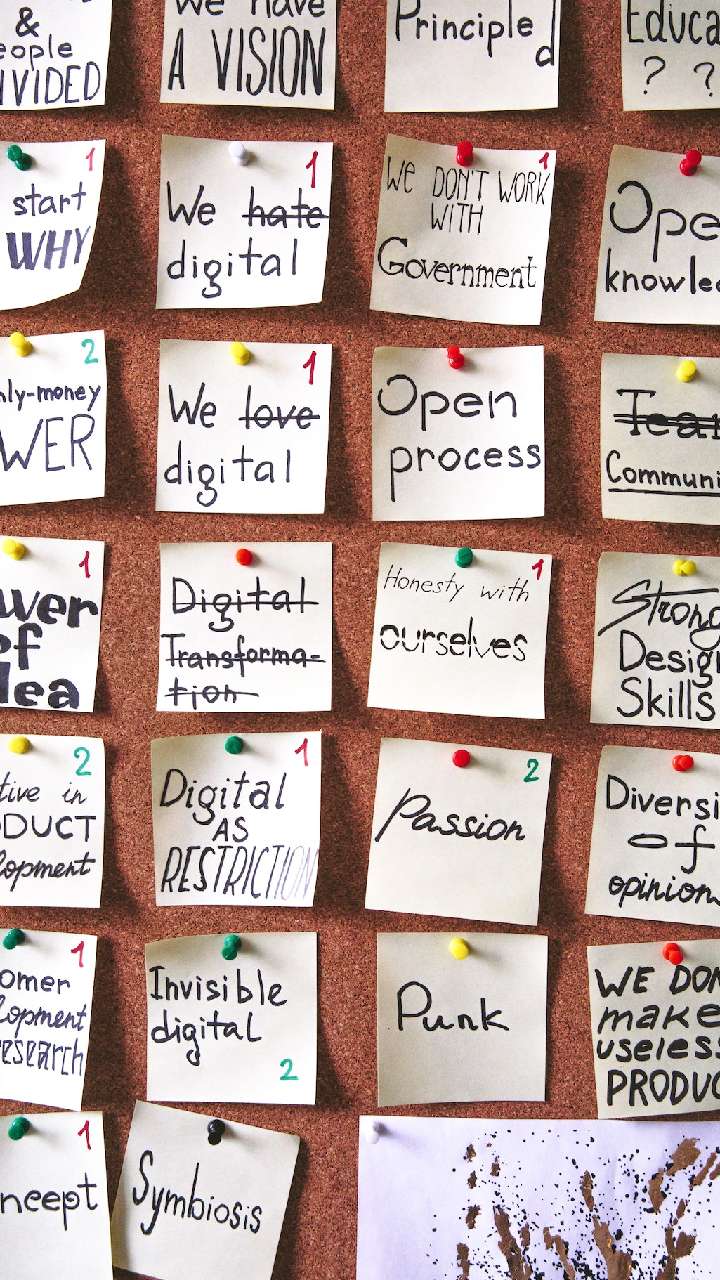 &
VIDED
We have
A VISION
Principle
d
Educa
? ?
1
start
WHY
1
We hate
digital
1
We DON'T WORK
WITH
Government
Ope
knowle
2
nly-money
WER
1
We love
digital
Open
process
Tea
Communi
1
wer
of
dea
Digital
Transforma-
tion
1
Honesty with
ourselves
Strong
Design
Skills
2
tive in
DUCT
lopment
1
Digital
AS
RESTRICTION
2
Passion
Diversi
of
opinion
1
omer
lopment
research
Invisible
digital
2
Punk
WE DON
make
useless
PRODUC
1
ncept
Symbiosis